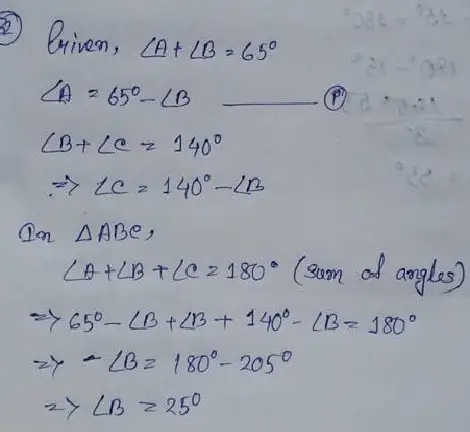 32
Given, ∠A + ∠B = 65°
∠A = 65° - ∠B ——— (P)
∠B + ∠C = 140°
=> ∠C = 140° - ∠B
In △ABC,
∠A + ∠B + ∠C = 180° (sum of angles)
=> 65° - ∠B + ∠B + 140° - ∠B = 180°
=> - ∠B = 180° - 205°
=> ∠B = 25°